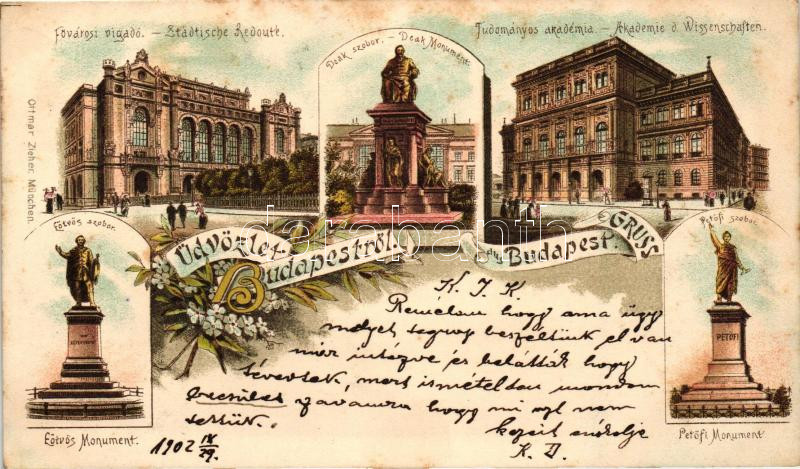 Fővárosi vigadó. – Städtische Redoute.
Deak szobor. – Deak Monument.
Tudományos akadémia. – Akademie d. Wissenschaften.
Ottmar Zieher, München.
Eötvös szobor.
Petőfi szobor.
Üdvözlet Budapestről.
Gruss aus Budapest.
darabanth.com
PETŐFI
K. J. K.
Remélem hogy ama ügy
melyet tegnap beszéltünk el van
már intézve és belátták hogy
tévedtek, mert ismételten mondom
becsület szavamra hogy mi azt nem
tettük.
kezeit csókolja
K. D.
1902 IV/29.
Eötvös Monument.
Petőfi Monument